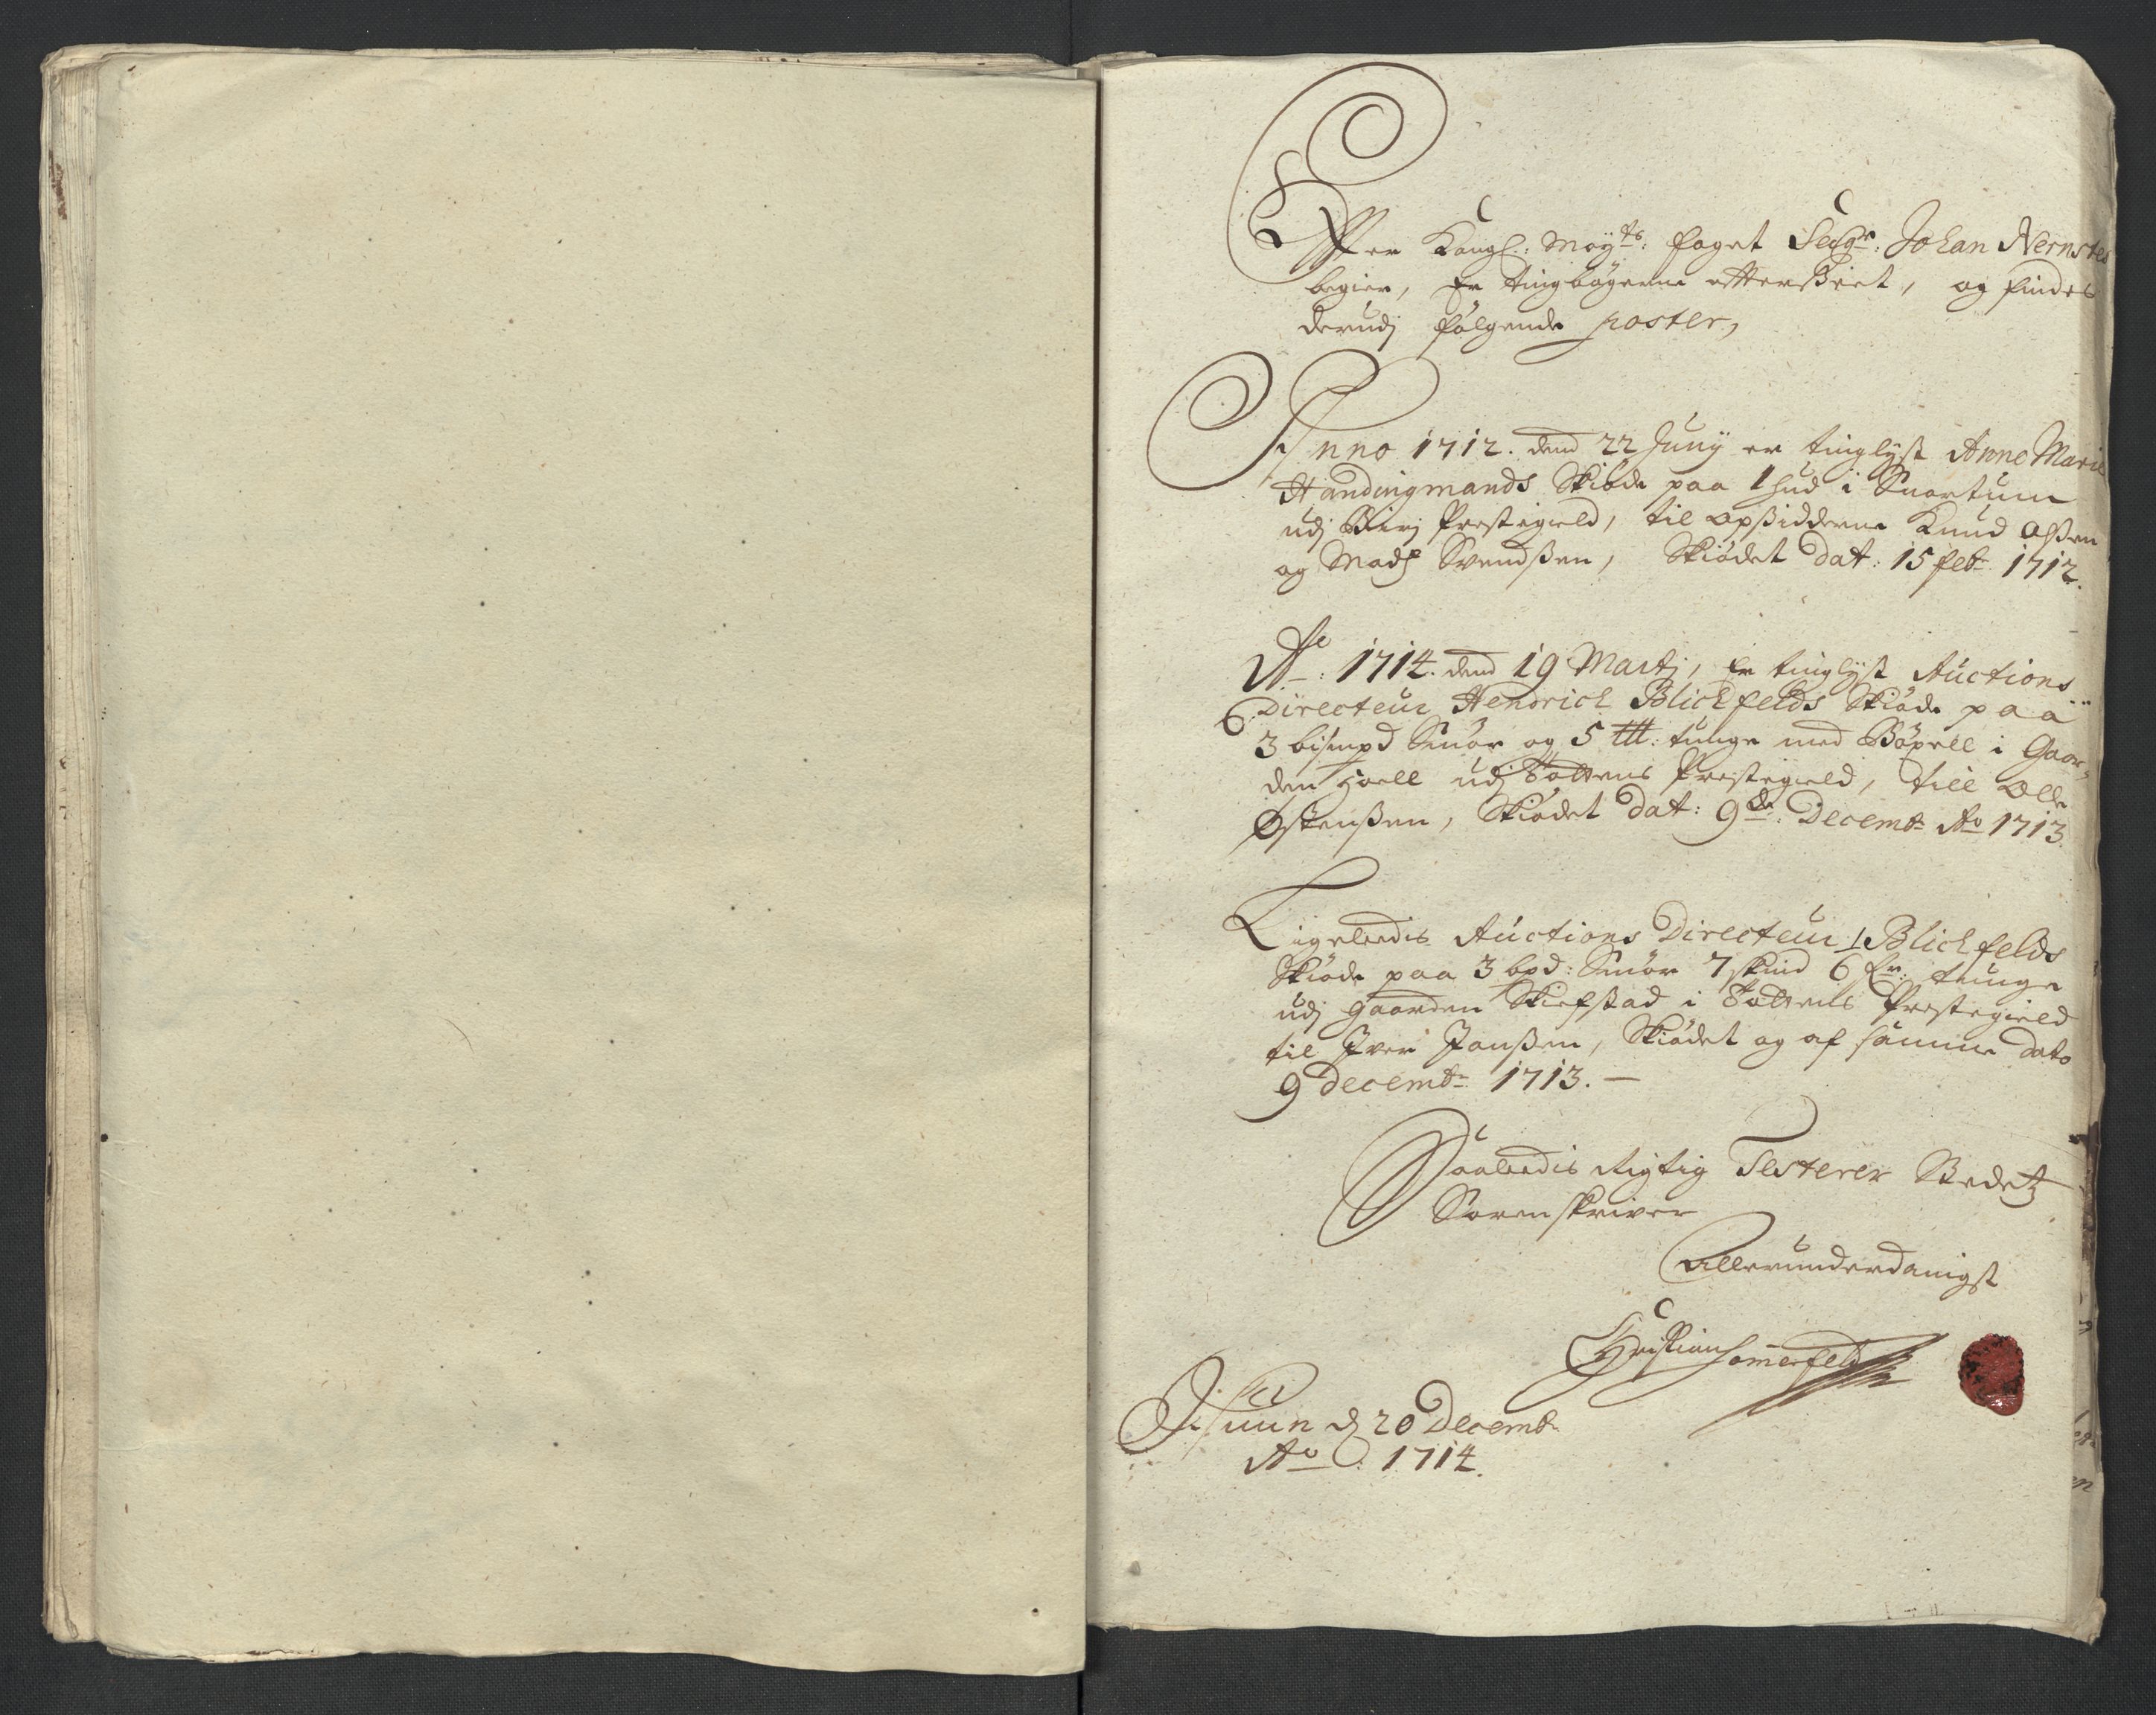 Effter Kongl: Mayts: foget Seigr: Johan Wernstes
begier, Er tingbøgerne efftersseet, og findes
derudj følgende poster,
Anno 1712. dend 22 Junij er tinglyst Anne Marie
Handingmands Skiøde paa 1 hud i Snartum
udj Birj Prestegield, til opsidderne Knud Olßen
og Madz Svendßen, Skiødet dat: 15 feb: 1712.
Ao: 1714. dend 19 Martj, Er tinglyst Auctions
Directeur Hendrich Blichfelds Skiøde paa
3 bismpd Smør og 5 tunge med Bøxell i Gaar-
den Hoell udj Tottens Prestegield, till Olle
Østenßen, Skiødet dat: 9de: Decembr Ao 1713
Ligeleedis Auctions Directeur Blichfelds
Skiøde paa 3 bpd: Smør 7 skind 6 tunge
udj gaarden Skiefstad i Tottens Prestegield
til Iver Janßen, Skiødet og af samme dato
9 decembr 1713. —
Saaleedis Rigtig Testerer
Sorenskriver
Allerunderdanigst
Christian Somerfeldt
d 20 Decembr
Ao: 1714.